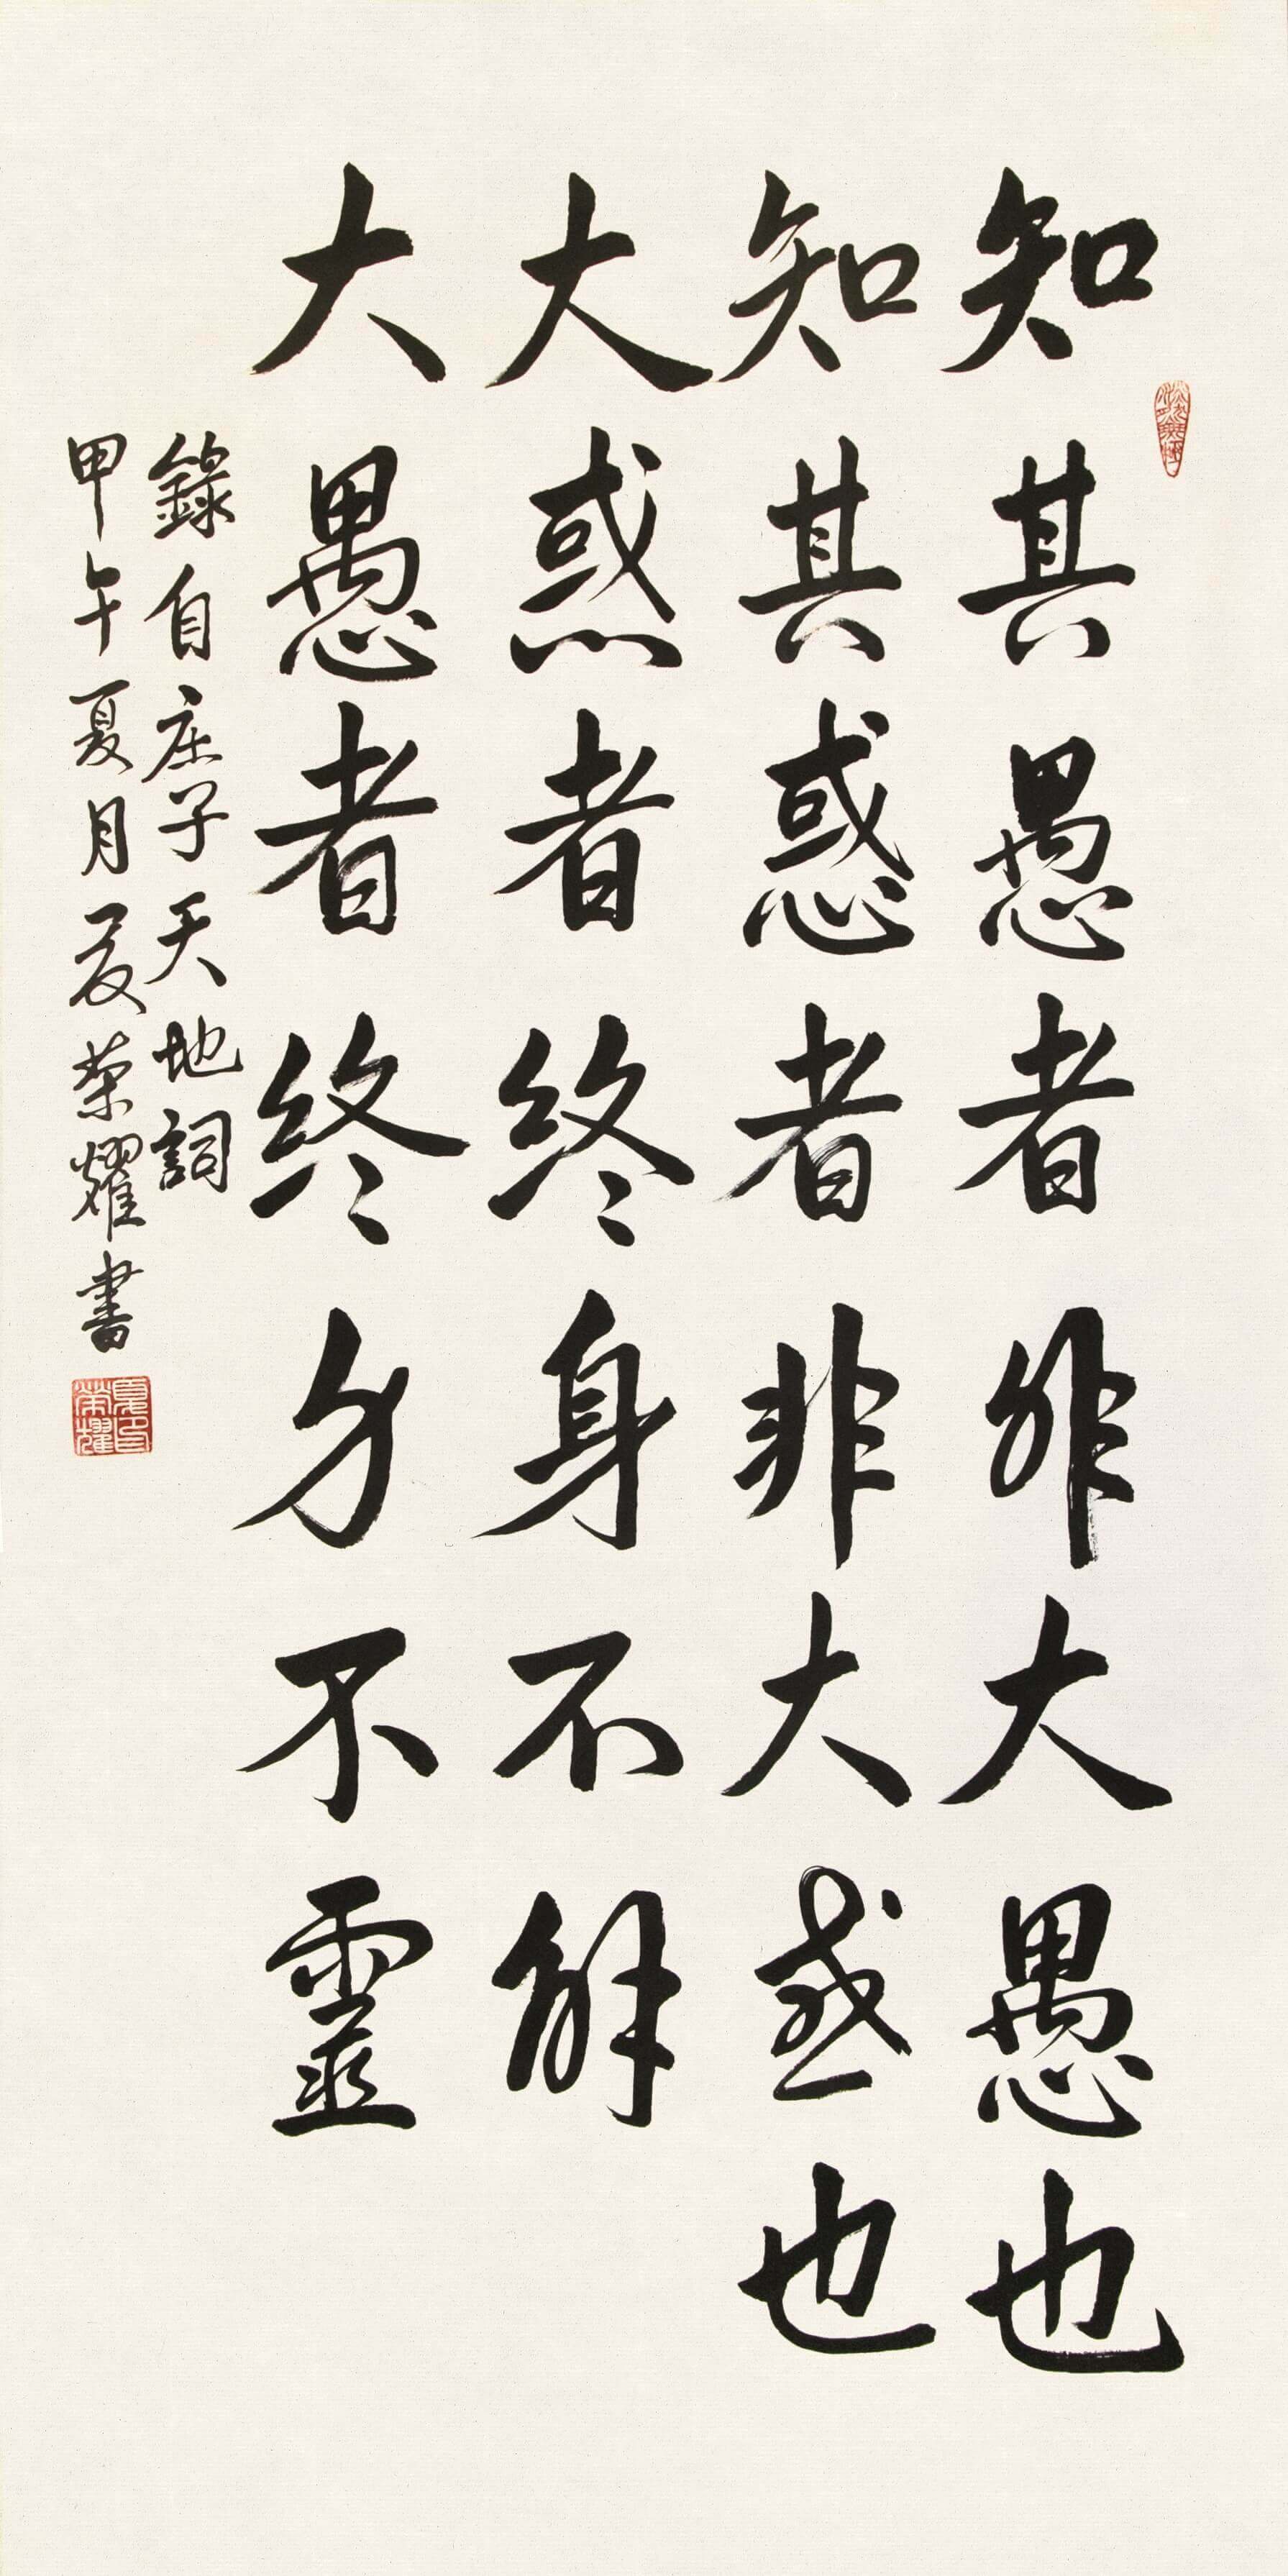 知其愚者非大愚也
知其惑者非大惑也
大惑者终身不解
大愚者终身不靈
錄自庄子天地詞
甲午夏月夏荣耀書
夏榮耀印